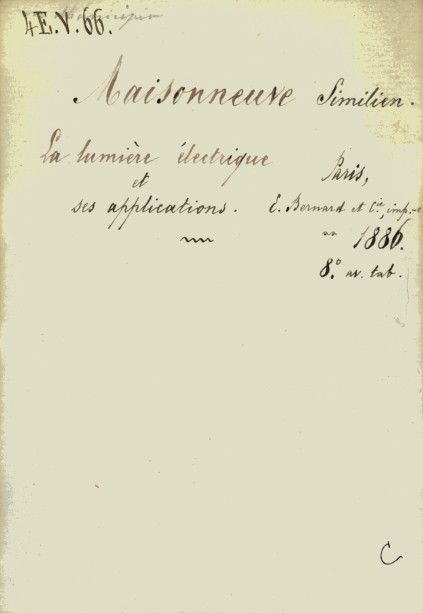 4E.V.66.
Maisonneuve Similien.
La lumière électrique
et
ses applications.
Paris,
E. Bernard et Cie, imp.-e
1886.
8.° av. tab.
C